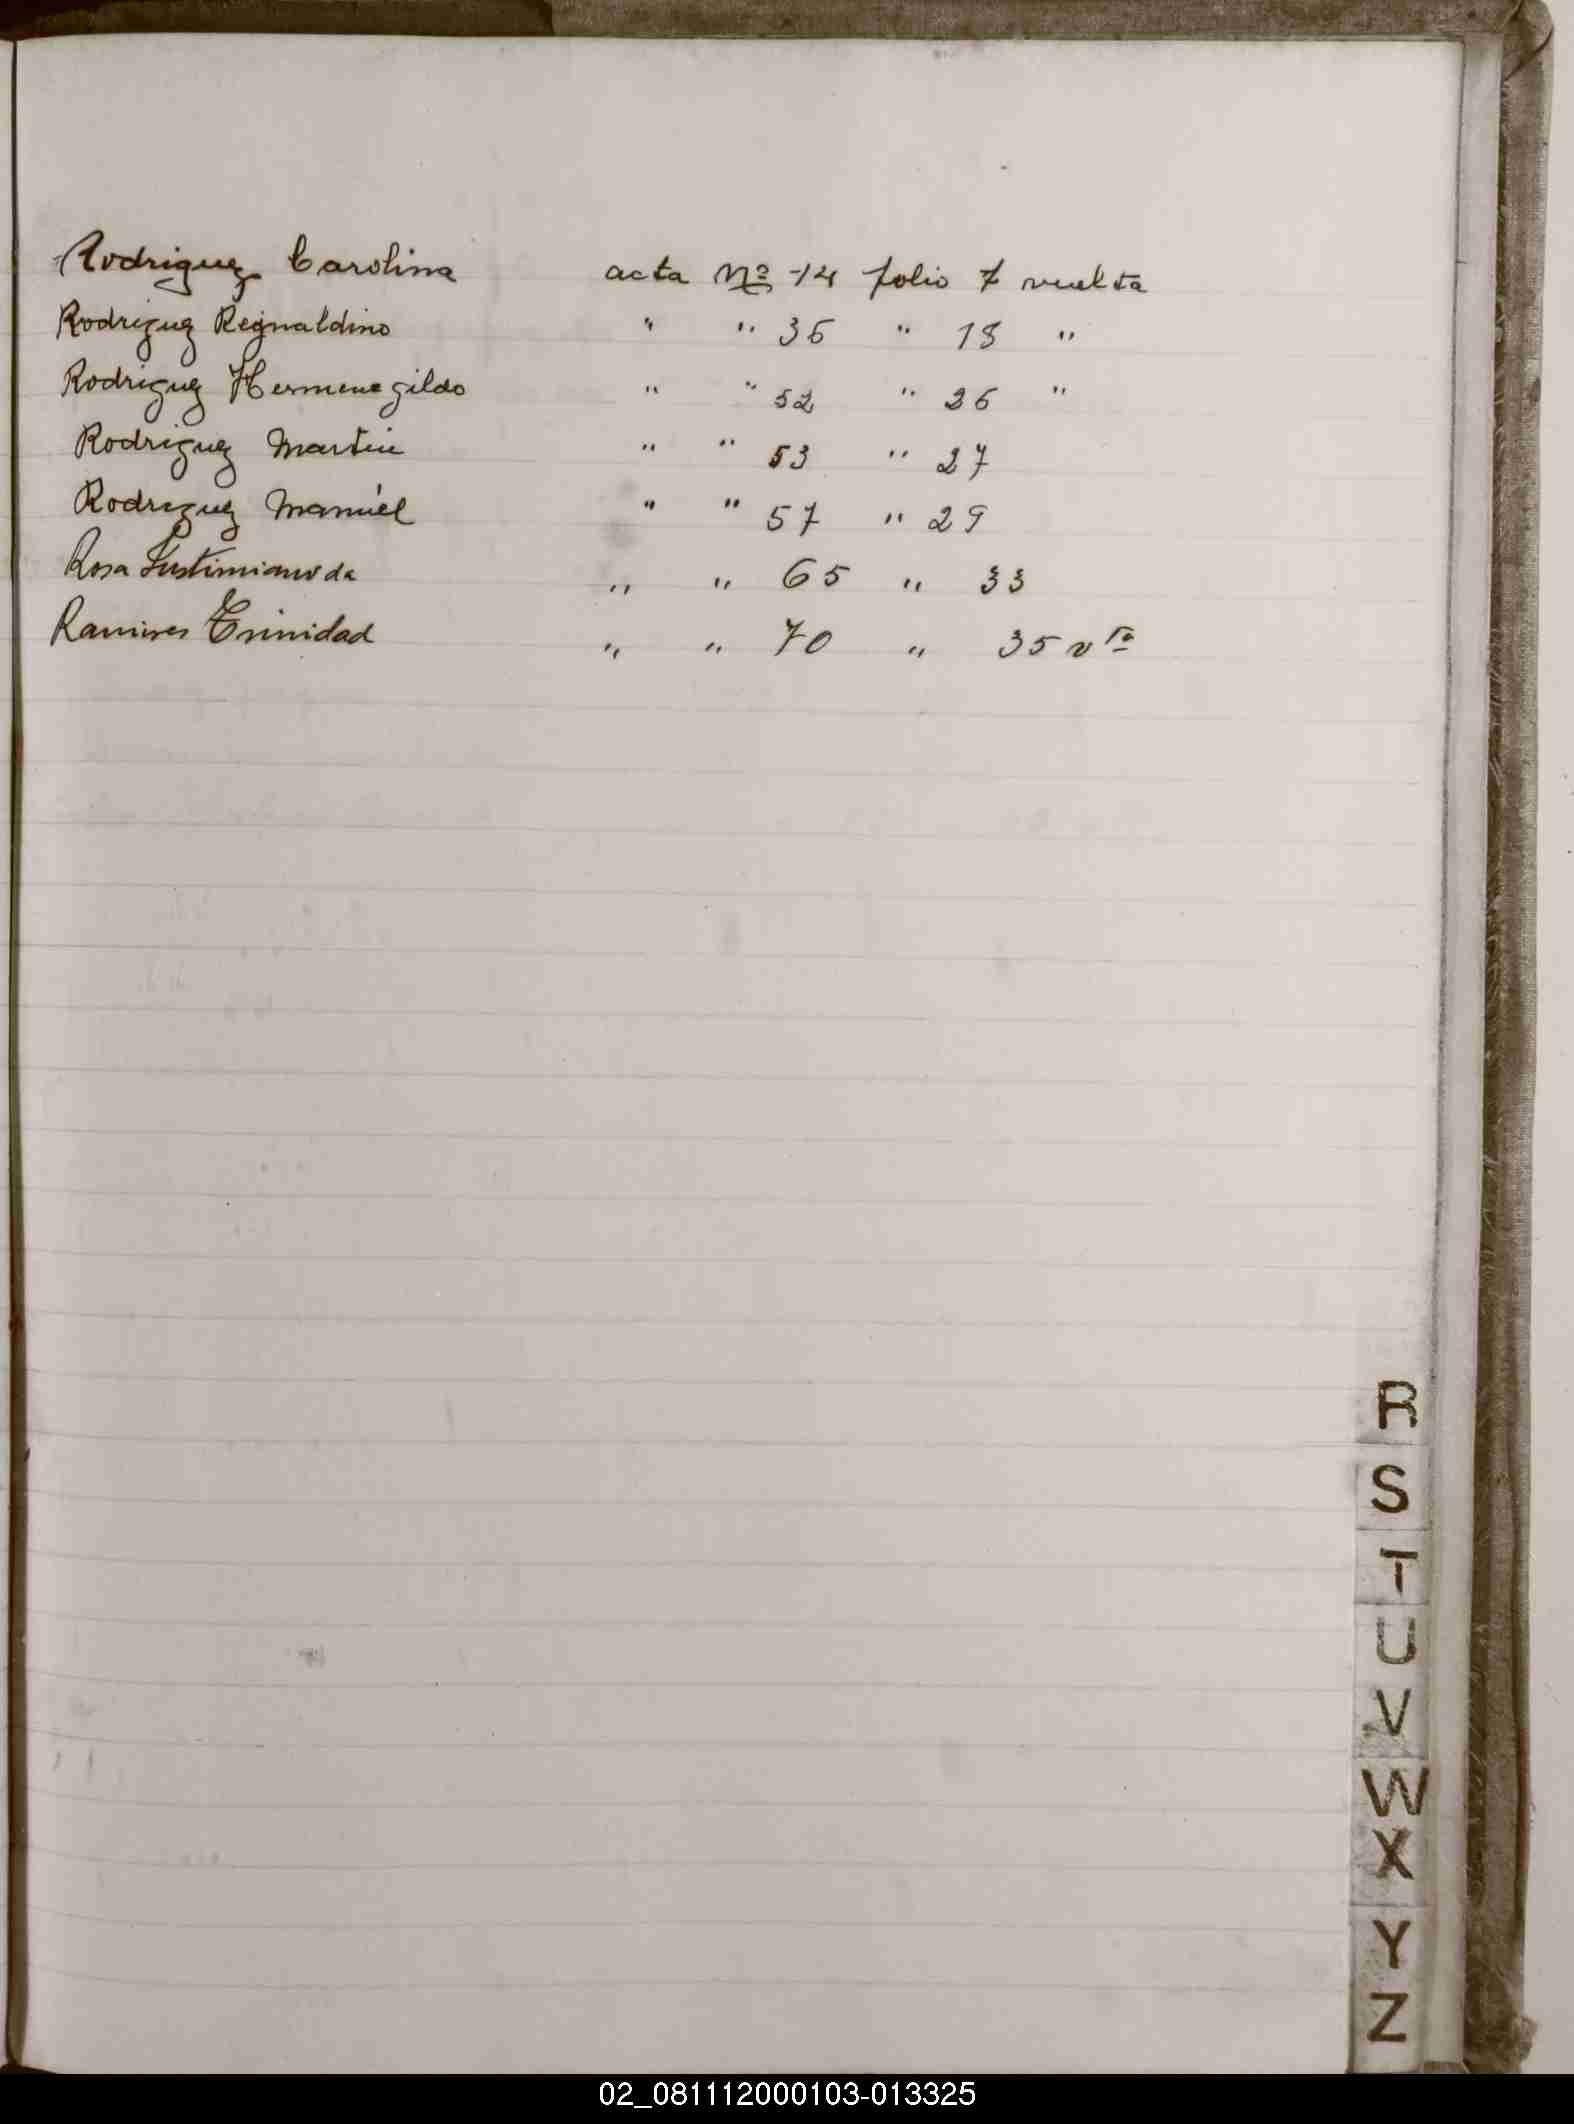 Rodriguez Carolina acta Nº 14 folio 7 vuelta
Rodriguez Reginaldino " " 36 " 18 "
Rodriguez Hermenegildo " " 52 " 26 "
Rodriguez Martin " " 53 " 27
Rodriguez Manuel " " 57 " 29
Rosa Justimiano da " " 65 " 33
Ramires Trinidad " " 70 " 35 vta
R
S
T
U
V
W
X
Y
Z
02_081112000103-013325